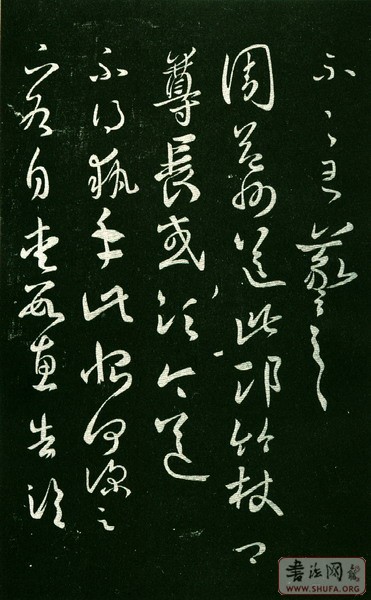 不一一王羲之
周益州送此邛竹杖卿
尊長或須今送
不得執手此恨何深足
下各自愛數惠告臨
書法网
WWW.SHUFA.ORG